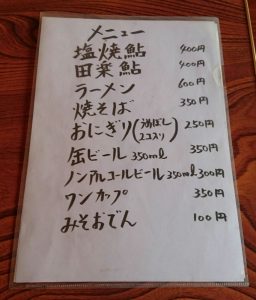 メニュー
塩焼鮎 400円
田楽鮎 400円
ラーメン 600円
焼そば 350円
おにぎり(うめぼし 2コスリ) 250円
缶ビール 350ml 350円
ノンアルコールビール 350ml 300円
ワンカップ 350円
みそおでん 100円